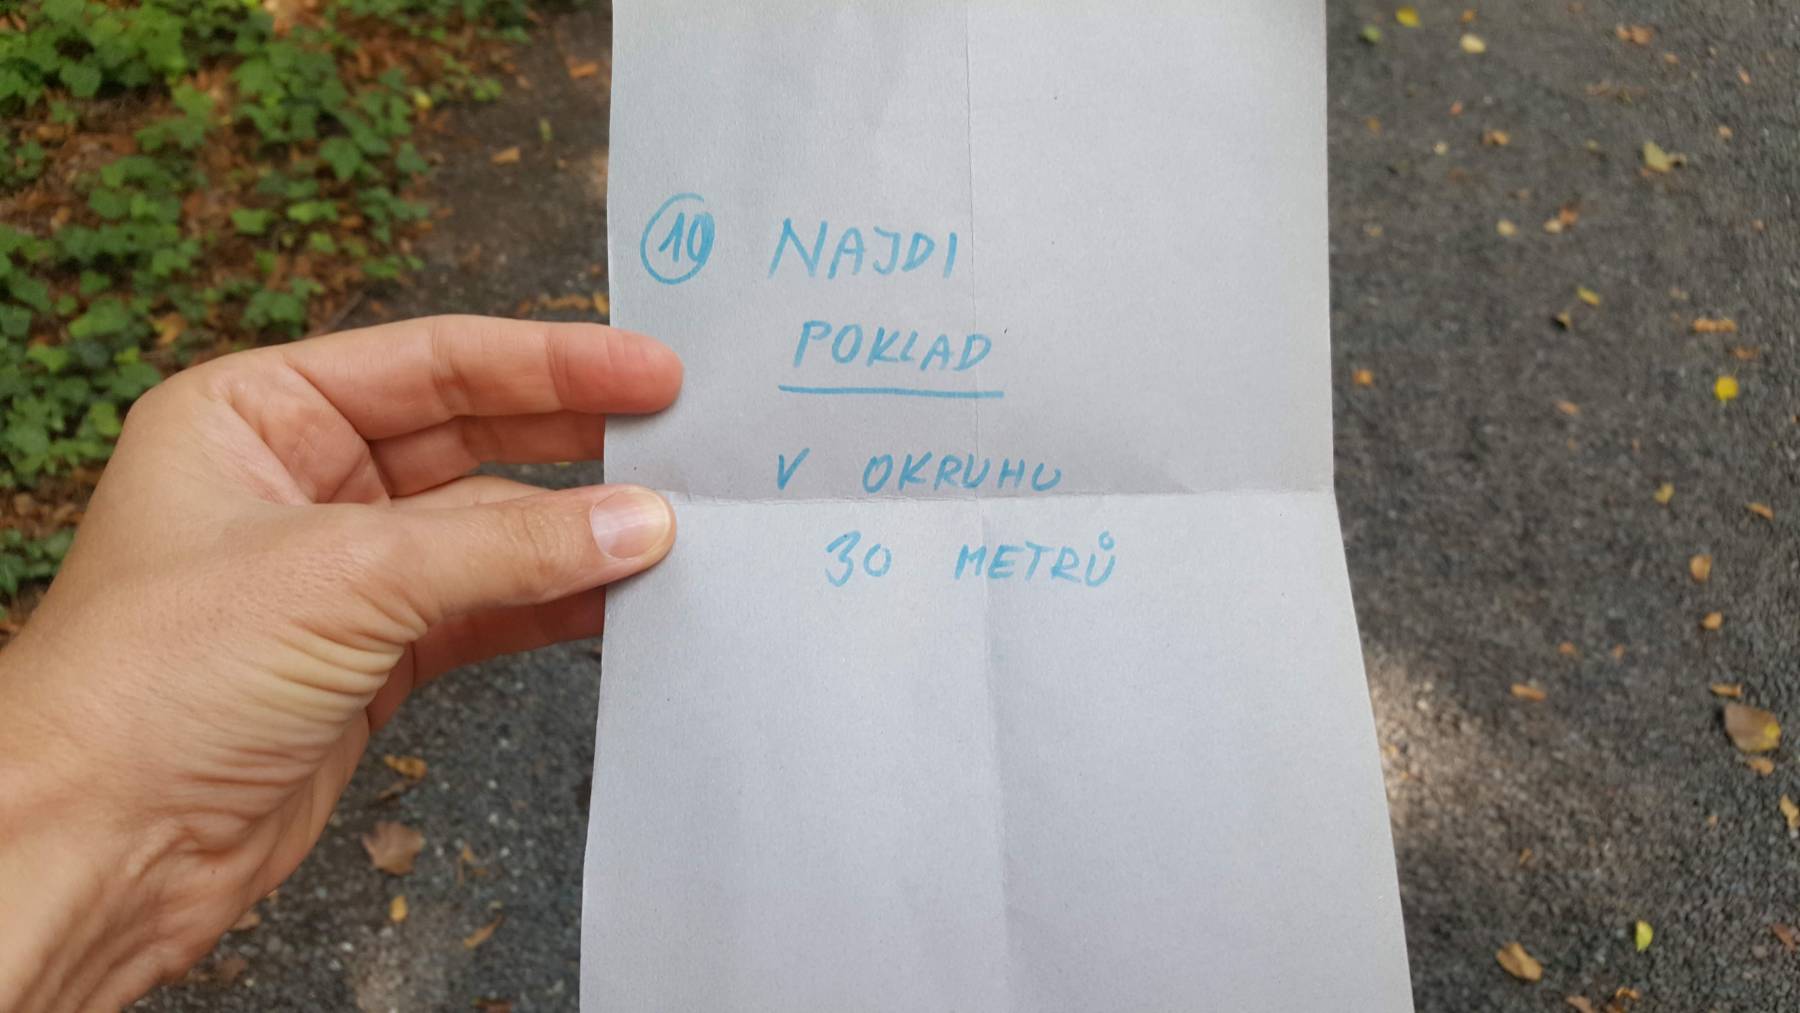 10 NAJDI
POKLAD
V OKRUHU
30 METRŮ